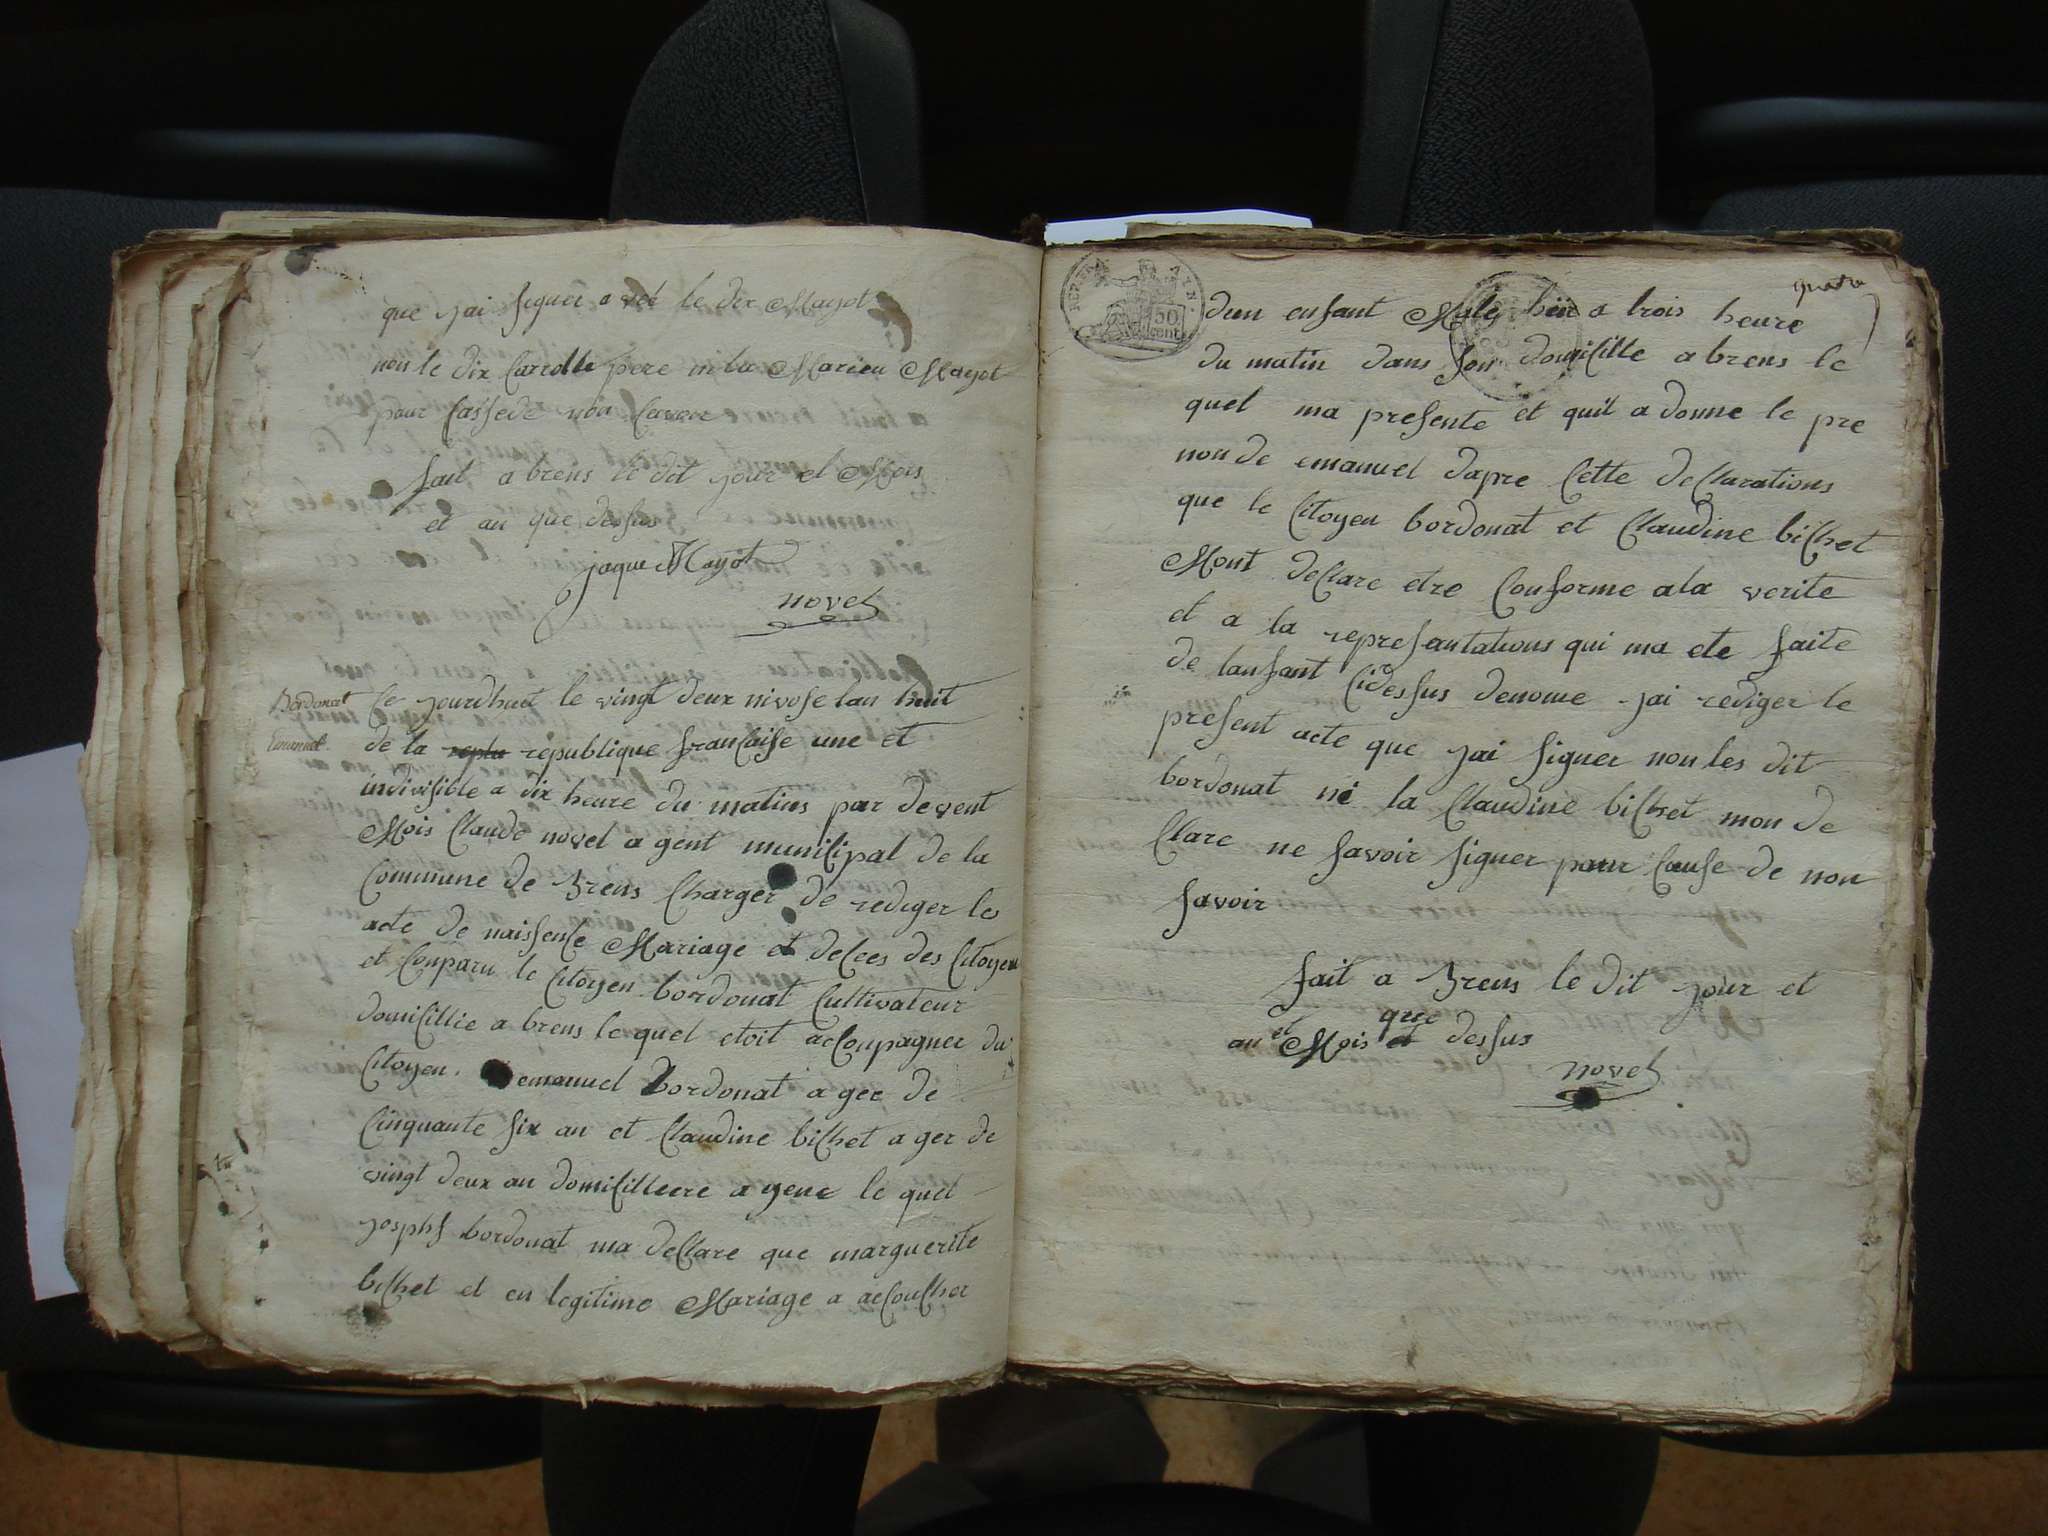 que jai signer avec le dix Mayot
non le dix Carrolle pere ni la Marieu Mayot
pour cassede non savoir
fait a brens le dit jour et Mois
et an que dessus
jaque Mayot
novel
Bordonat
Emanuel
Ce jourdhuit le vingt deux nivose lan huit
de la repu republique francaise une et
indivisible a dix heure du matins par devent
Mois Claude novel agent municipal de la
Commune de Brens Charger de rediger les
acte de naissence Mariage et decees des Citoyen
et Conparu le Citoyen bordonat Cultivateur
domicillie a brens le quel etoit accoupagner du
Citoyen. emanuel bordonat a ger de
Cinquante six an et Claudine bichet a ger de
vingt deux an domicilliere a gene le quel
josphs bordonat ma declare que marguerite
bichet et en legitime Mariage a accoucher
quatre
REP. FRA
50
cent.
dun enfant Male hier a trois heure
du matin dans son domicille a brens le
quel ma presente et quil a donne le pre
non de emanuel dapre Cette declarations
que le Citoyen bordonat et Claudine bichet
Mont declare etre Conforme a la verite
et a la represantations qui ma ete faite
de lanfant Cidessus denome jai rediger le
present acte que jai signer non les dit
bordonat ni la Claudine bichet mon de
Clare ne savoir signer pour Cause de non
savoir
fait a Brens le dit jour et
an et Mois et que dessus
novel